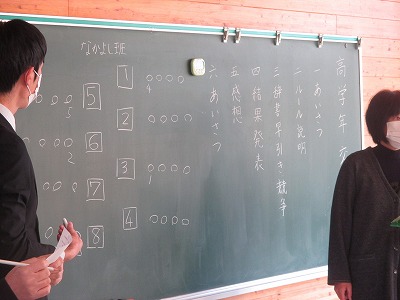 高学年 交
一 あいさつ
二 ルール説明
三 辞書早引き競争
四 結果発表
五 感想
六 あいさつ
なかよし班
1 ○○○○
4
2 ○○○○
3 ○○○○
1
4 ○○○○
5 ○○○
5
6 ○○
2
7 ○○
8 ○